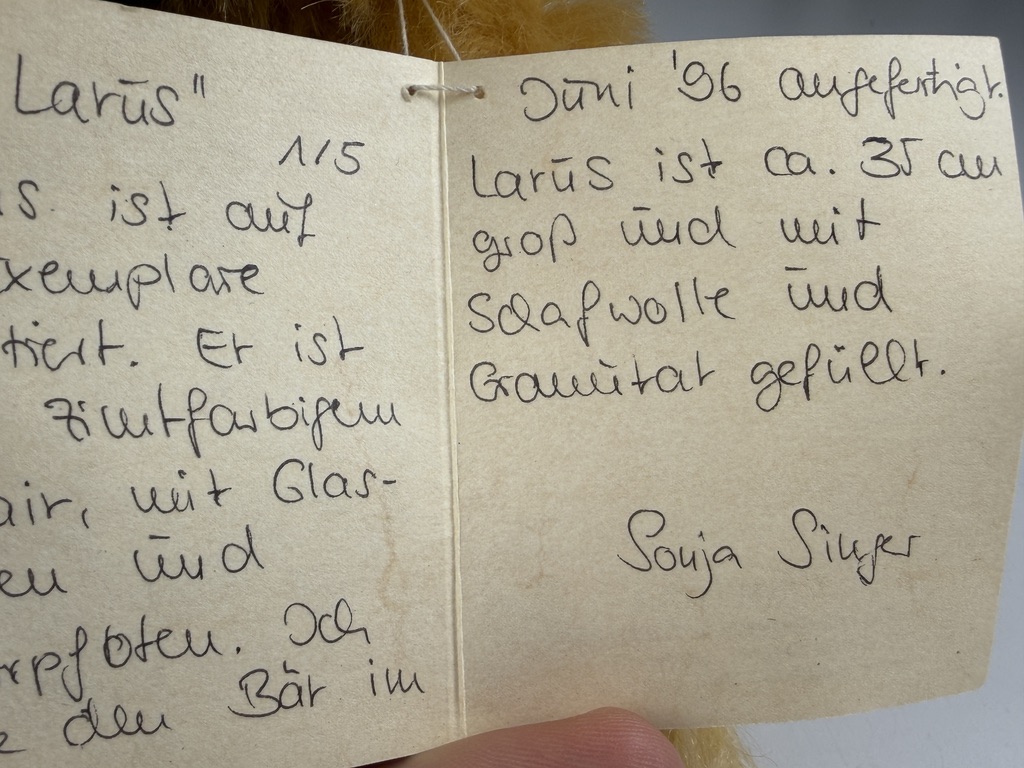 Larus"
1/5
s. ist auf
xemplare
tiert. Er ist
zimtfarbigem
air, mit Glas-
en und
rpfoten. Ich
e den Bär im
Juni '96 angefertigt.
Larus ist ca. 35 cm
groß und mit
Schafwolle und
Granulat gefüllt.
Sonja Singer